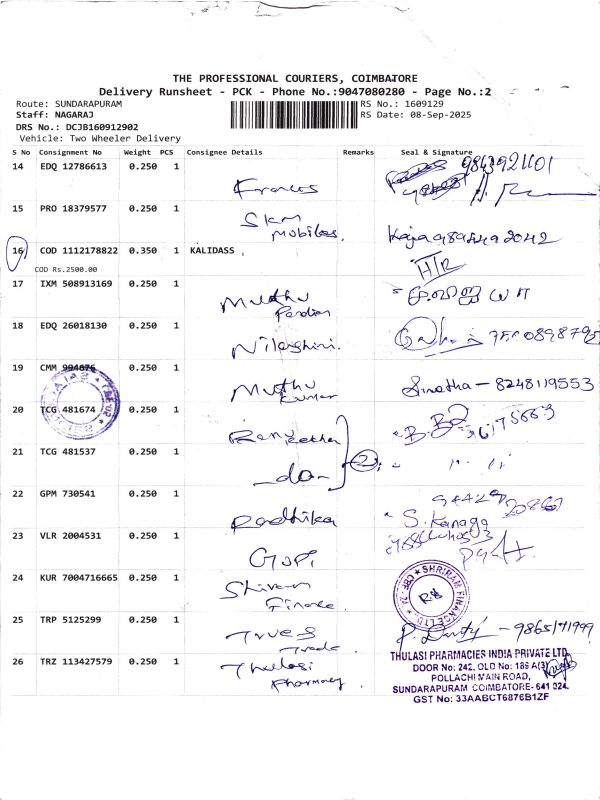 THE PROFESSIONAL COURIERS, COIMBATORE
Delivery Runsheet - PCK - Phone No.:9047080280 - Page No.:2
Route: SUNDARAPURAM
RS No.: 1609129
Staff: NAGARAJ
RS Date: 08-Sep-2025
DRS No.: DCJB160912902
Vehicle: Two Wheeler Delivery
S No Consignment No Weight PCS Consignee Details Remarks Seal & Signature
14 EDQ 12786613 0.250 1 9843921101
Frances
15 PRO 18379577 0.250 1
SKM
Mobiles.
16 COD 1112178822 0.350 1 KALIDASS
COD Rs.2500.00
H/R
17 IXM 508913169 0.250 1
Muthu
Pandian
18 EDQ 26018130 0.250 1
Nilarshini.
19 CMM 994676 0.250 1
Muthu
Kumar
Sinatha - 8248119553
20 TCG 481674 0.250 1
21 TCG 481537 0.250 1
-do- 2
22 GPM 730541 0.250 1
Radhika
S. Kanaga
23 VLR 2004531 0.250 1
Gopi
24 KUR 7004716665 0.250 1
Shriram
Finance.
SHRIRAM FINANCE LTD
25 TRP 5125299 0.250 1
Trues
Trade.
9865171999
26 TRZ 113427579 0.250 1
Thulasi
Pharmacy
THULASI PHARMACIES INDIA PRIVATE LTD
DOOR No: 242, OLD No: 186 A(3)
POLLACHI MAIN ROAD,
SUNDARAPURAM COIMBATORE- 641 024.
GST No: 33AABCT6876B1ZF